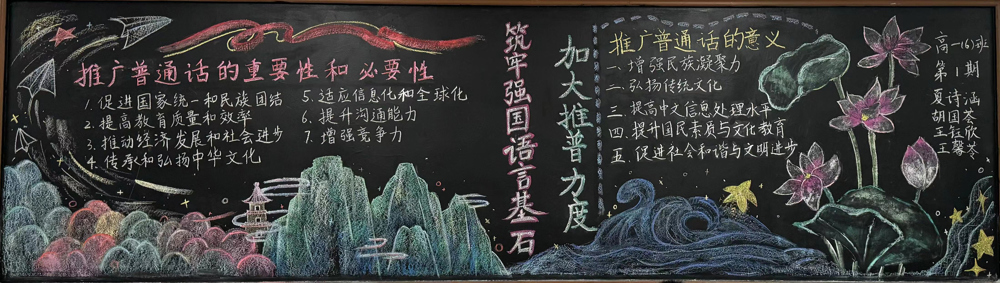 推广普通话的重要性和必要性
1.促进国家统一和民族团结
2.提高教育质量和效率
3.推动经济发展和社会进步
4.传承和弘扬中华文化
5.适应信息化和全球化
6.提升沟通能力
7.增强竞争力
筑牢强国语言基石
加大推普力度
推广普通话的意义
一、增强民族凝聚力
二、弘扬传统文化
三、提高中文信息处理水平
四、提升国民素质与文化教育
五、促进社会和谐与文明进步
高一(6)班
第1期
夏诗涵